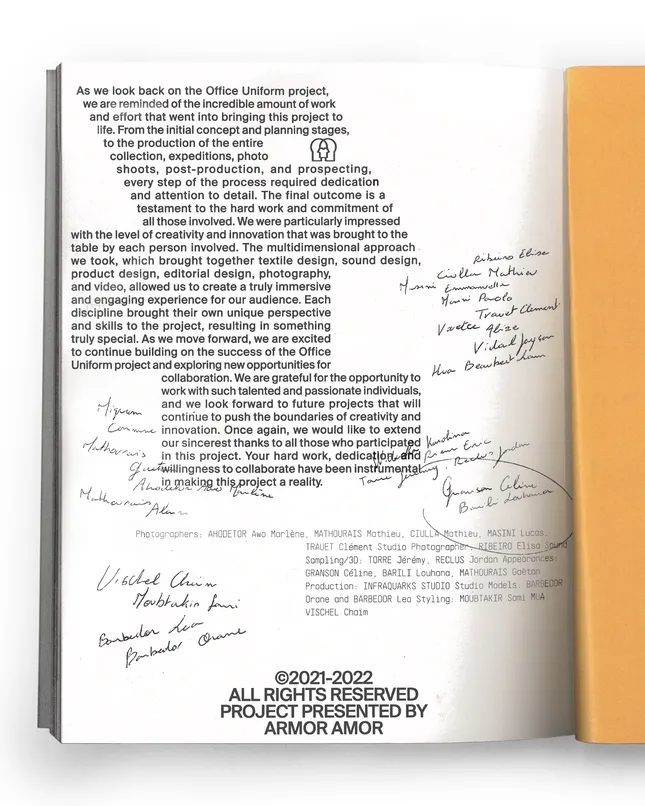 As we look back on the Office Uniform project,
we are reminded of the incredible amount of work
and effort that went into bringing this project to
life. From the initial concept and planning stages,
to the production of the entire
collection, expeditions, photo
shoots, post-production, and prospecting,
every step of the process required dedication
and attention to detail. The final outcome is a
testament to the hard work and commitment of
all those involved. We were particularly impressed
with the level of creativity and innovation that was brought to the
table by each person involved. The multidimensional approach
we took, which brought together textile design, sound design,
product design, editorial design, photography,
and video, allowed us to create a truly immersive
and engaging experience for our audience. Each
discipline brought their own unique perspective
and skills to the project, resulting in something
truly special. As we move forward, we are excited
to continue building on the success of the Office
Uniform project and exploring new opportunities for
collaboration. We are grateful for the opportunity to
work with such talented and passionate individuals,
and we look forward to future projects that will
continue to push the boundaries of creativity and
innovation. Once again, we would like to extend
our sincerest thanks to all those who participated
in this project. Your hard work, dedication, and
willingness to collaborate have been instrumental
in making this project a reality.
Ribeiro Élisa
Ciulla Mathieu
Masini Emmanuelle
Masini Paolo
Trauet Clement
Alize
Vidal
Beaubert
Mathourais
Mathourais
Alain
Granson Céline
Barili Louhana
Photographers: AHODETOR Awo Marlène, MATHOURAIS Mathieu, CIULLA Mathieu, MASINI Lucas,
TRAUET Clément Studio Photographer: RIBEIRO Elisa Sound
Sampling/3D: TORRE Jérémy, RECLUS Jordan Appearances:
GRANSON Céline, BARILI Louhana, MATHOURAIS Gaëtan
Production: INFRAQUARKS STUDIO Studio Models: BARBEDOR
Orane and BARBEDOR Lea Styling: MOUBTAKIR Sami MUA
VISCHEL Chaïm
Vischel Chaïm
Moubtakir Sami
Barbedor Lea
Barbedor Orane
©2021-2022
ALL RIGHTS RESERVED
PROJECT PRESENTED BY
ARMOR AMOR